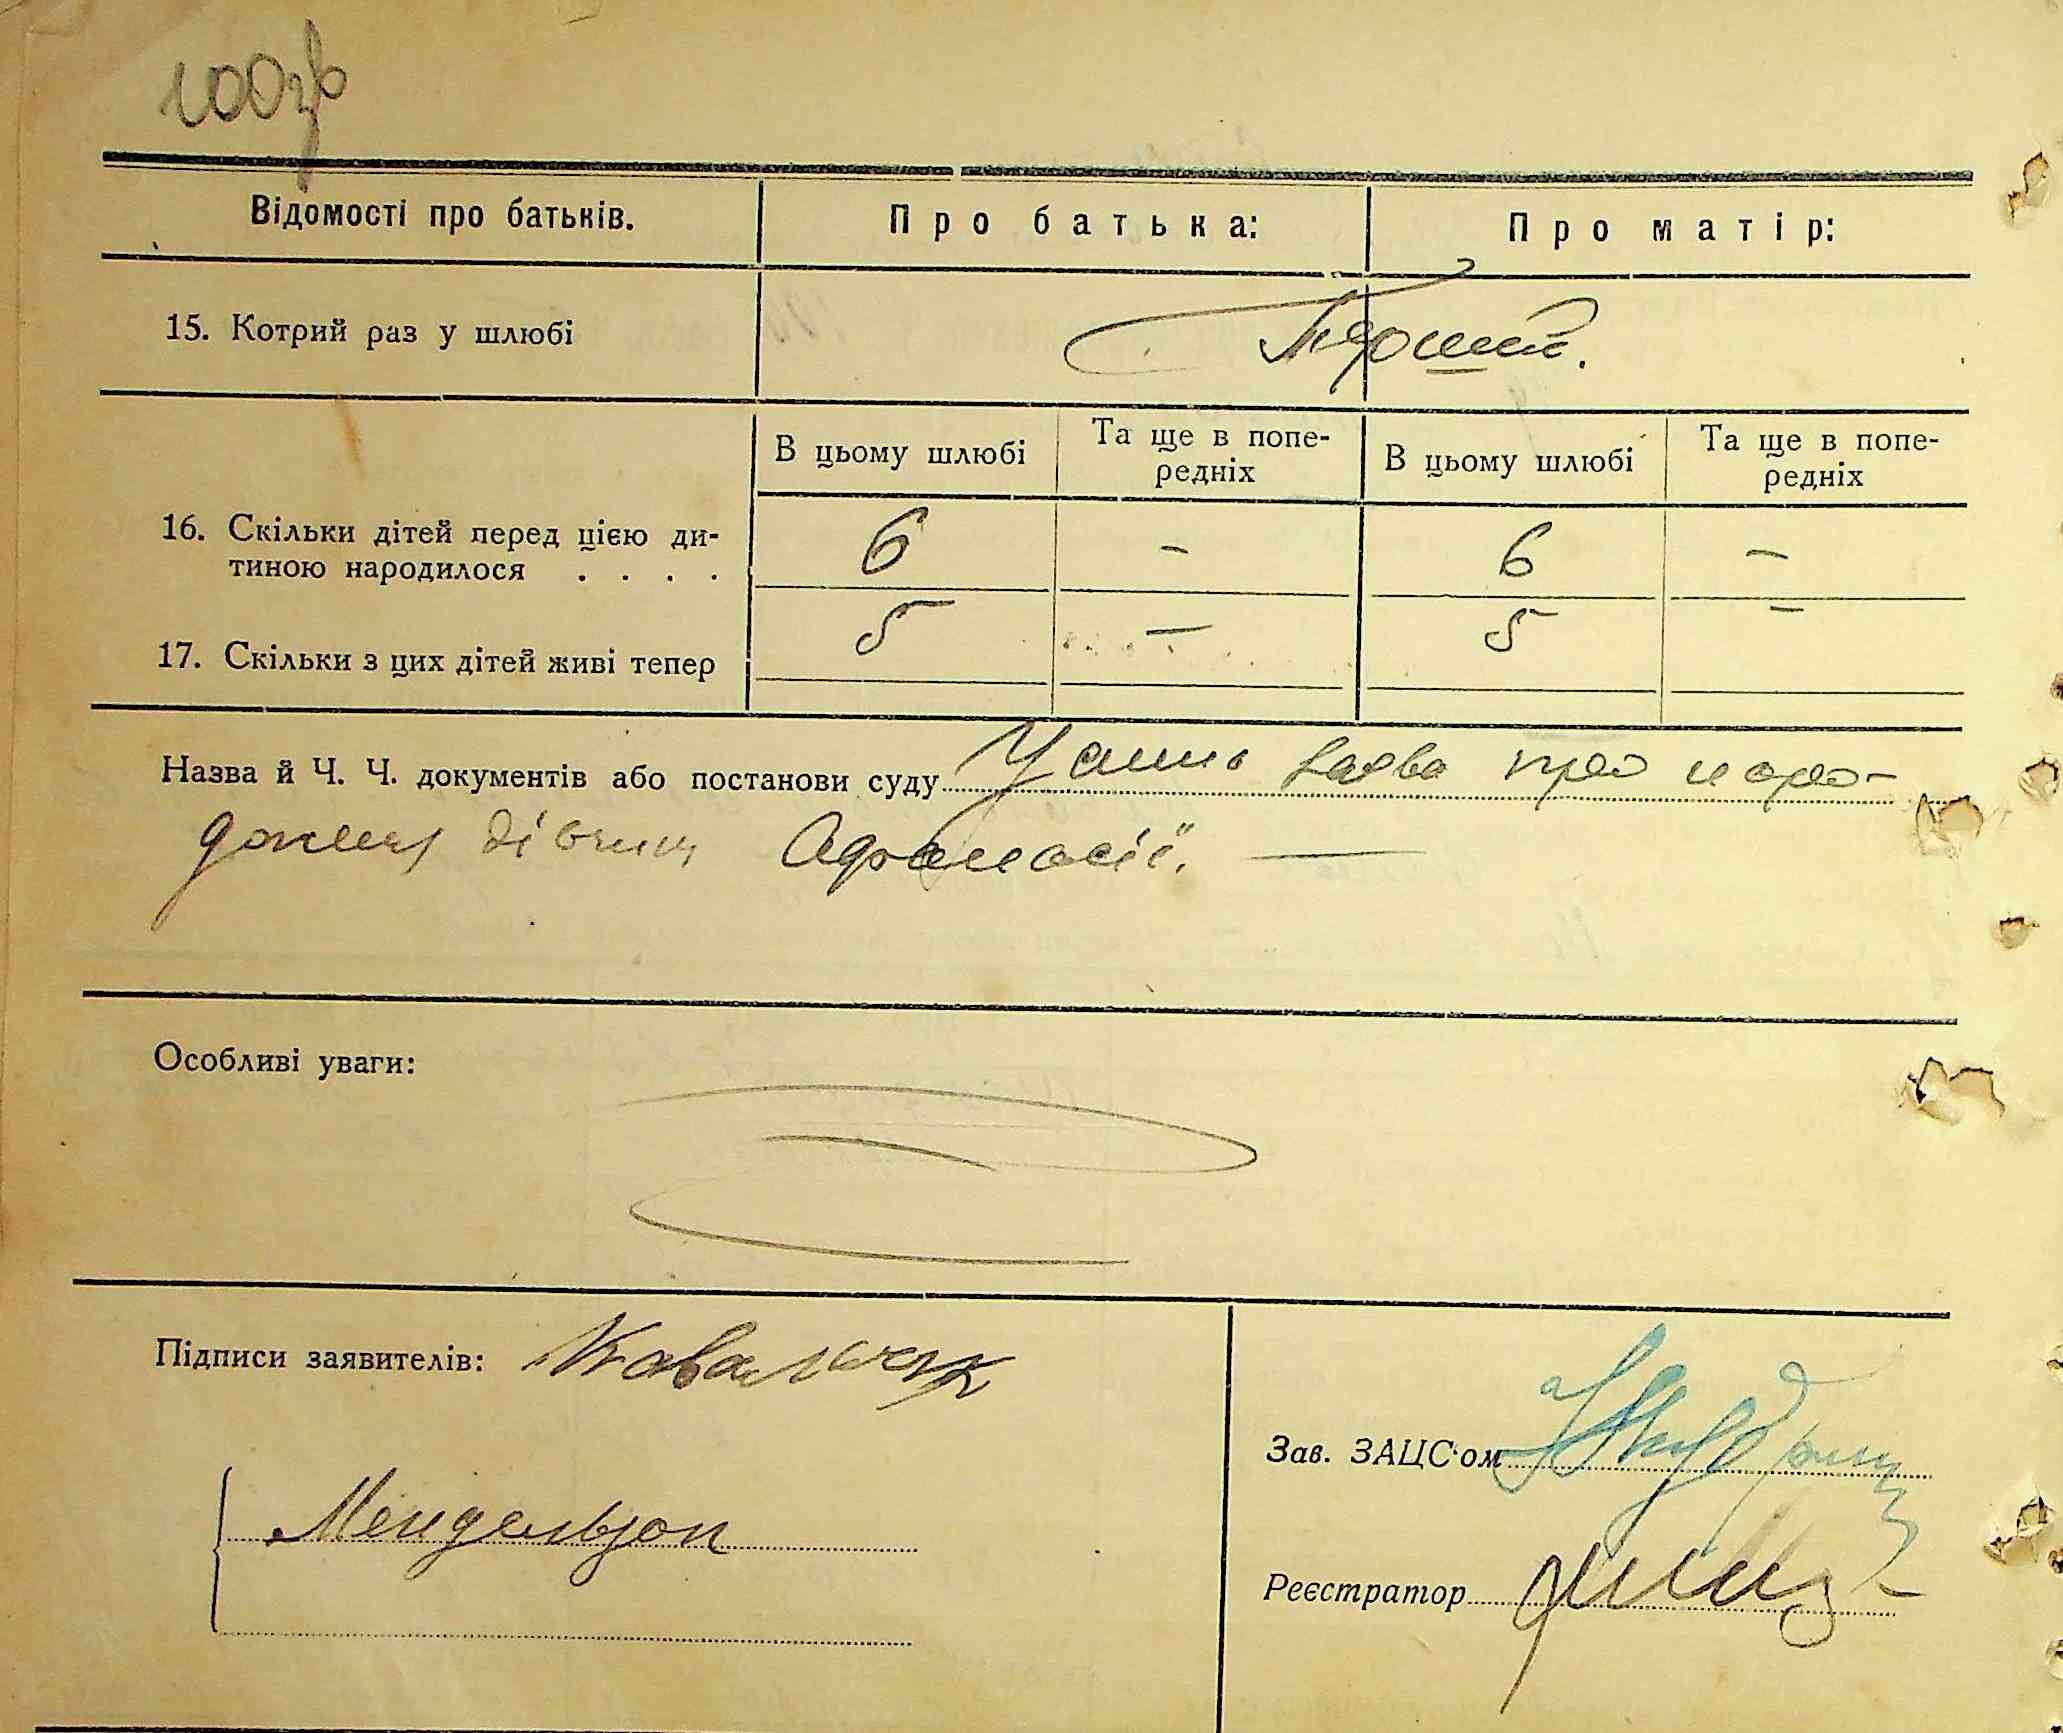 100зв
Відомості про батьків.
Про батька:
Про матір:
15. Котрий раз у шлюбі
Перший.
В цьому шлюбі
Та ще в попе-
редніх
В цьому шлюбі
Та ще в попе-
редніх
16. Скільки дітей перед цією ди-
тиною народилося . . . .
6 – 6 –
17. Скільки з цих дітей живі тепер
5 – 5 –
Назва й Ч. Ч. документів або постанови суду Усна заява про наро-
дження дівчини Афанасії. —
Особливі уваги:
Підписи заявителів: Ковальчук
Мендельзон
Зав. ЗАЦС'ом
Реєстратор